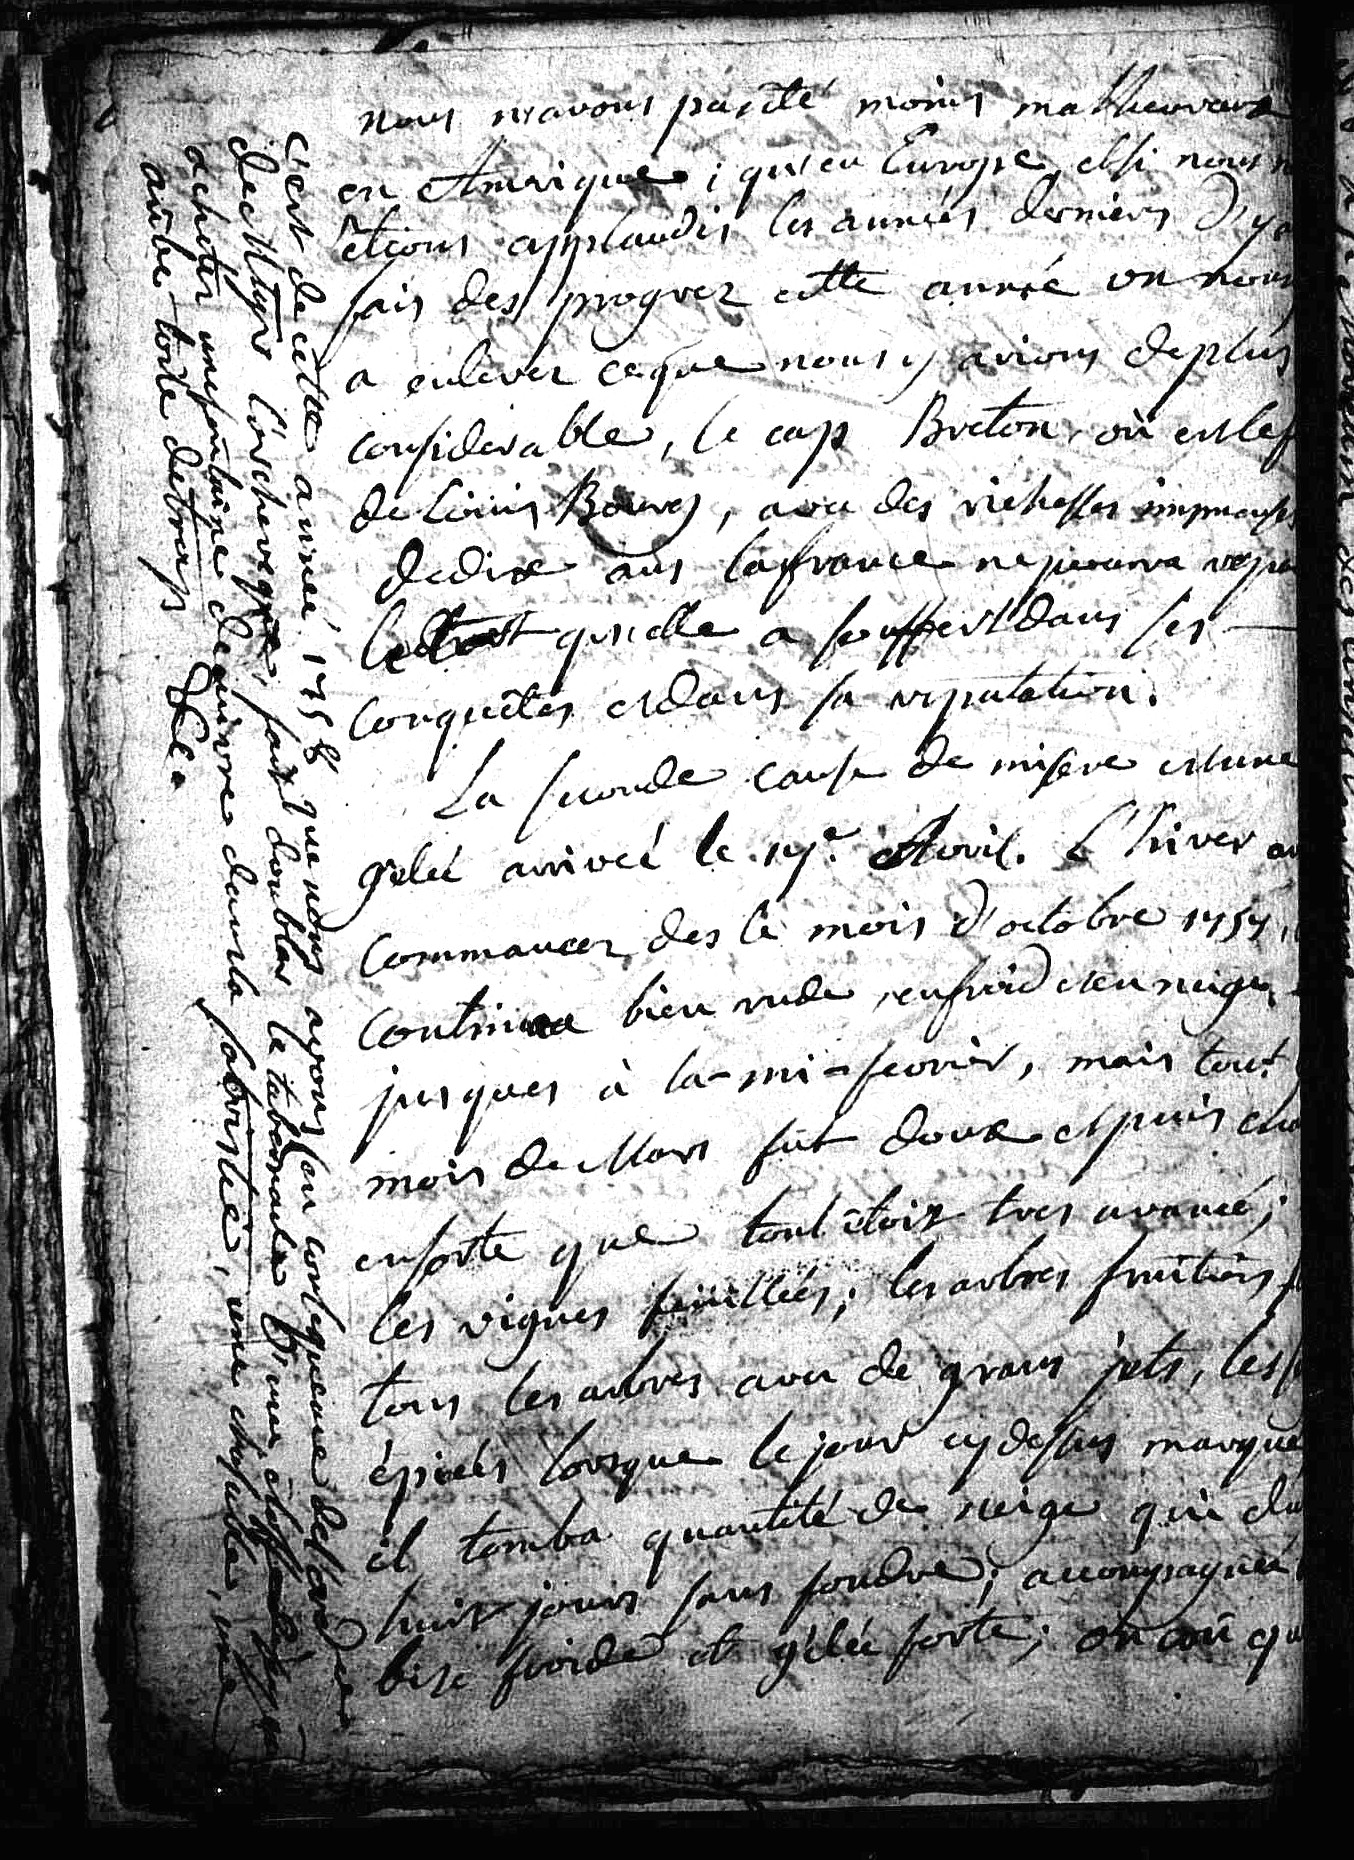 nous n'avons pas été moins malheureux
en Amerique ; qu'en Europe, et si nous n
êtions applaudis les années dernieres d'y a
fais des progrez cette année on nous
a enlever ce que nous y avions de plus
considerable, le cap Breton, où est le f
de Louis Bourg, avec des richesses immenses
de dix ans la france ne pourra repa
le tort qu'elle a souffert dans ses
conquêtes et dans sa reputation.
La seconde cause de misere est une
gelée arriveé le 17e. Avril. L'hiver a
commancer des le mois d'octobre 1757,
continua bien rude, en froid et en neige,
jusques à la-mi-fevrier, mais tout
mois de Mars fut doux et puis cha
ensorte que tout êtoit tres avancé;
les vignes feuilleés; les arbres fruitiers f
tous les arbres avec de grans jets, les
épieés lorsque le jour cy dessus marqué
il tomba quantité de neige qui du
huit jours sans fondre; accompagneé
bise froide et gélée forte; on cru qu
C'est de cette année 1758 que nous avons en consequence de l'ord ce
de Mgr l'archeveque, fait doubler le tabernacle d'une étoffe
acheter une fontaine de cuivre dans la sacristie, une chasuble, une
aube toile de trap